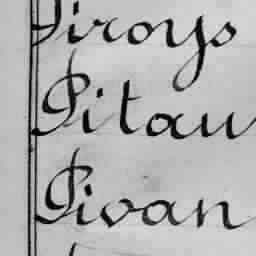 Piroys
Pitau
Pivan